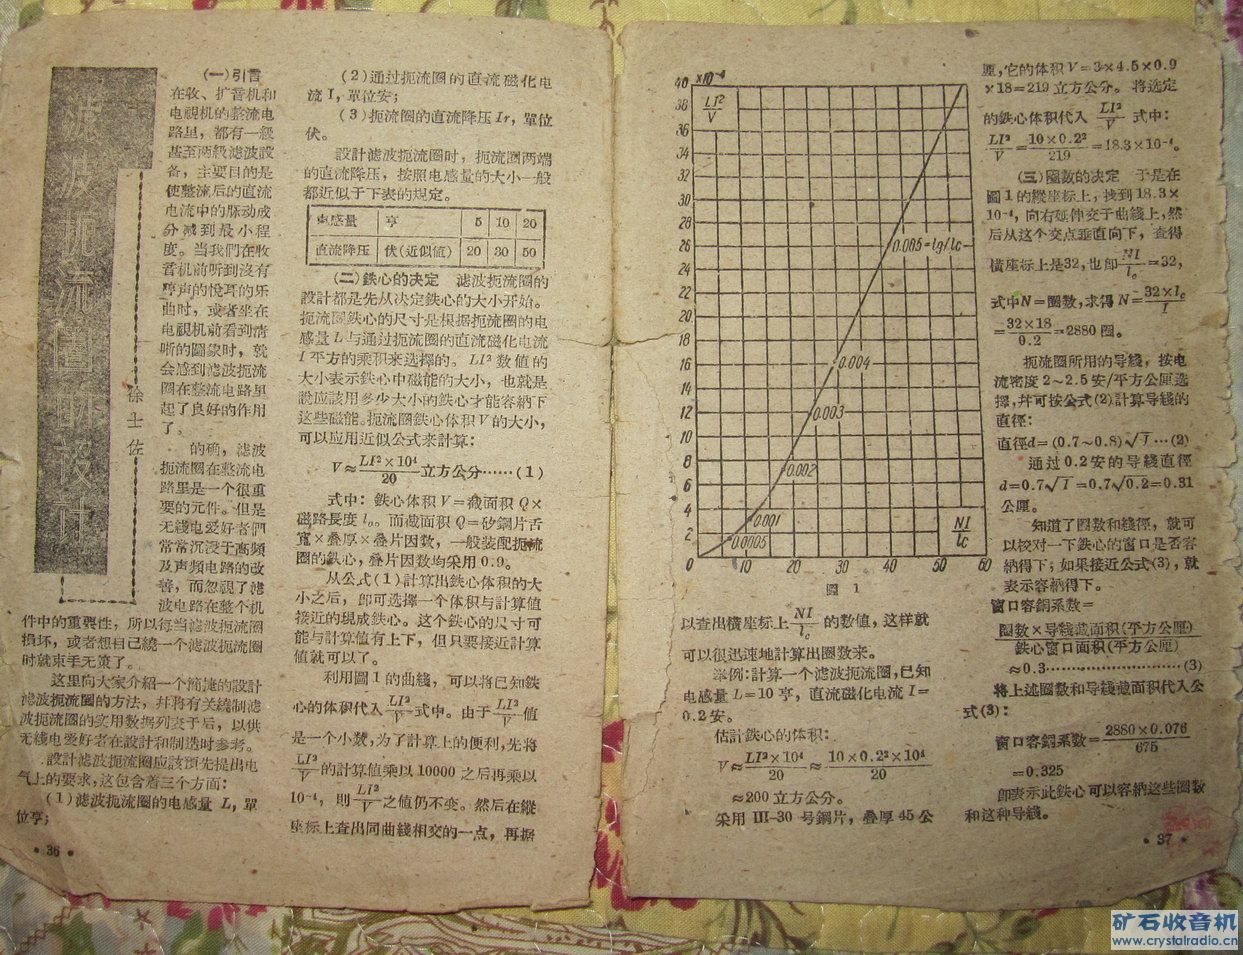 滤波扼流圈的設計
徐士佐
(一)引言
在收、扩音机和
电視机的整流电
路里，都有一級
甚至兩級滤波設
备，主要目的是
使整流后的直流
电流中的脉动成
分減到最小程
度。当我們在收
音机前听到沒有
哼声的悅耳的乐
曲时，或者坐在
电視机前看到清
晰的圖象时，就
会感到滤波扼流
圈在整流电路里
起了良好的作用
了。
的确，滤波
扼流圈在整流电
路里是一个很重
要的元件。但是
无綫电爱好者們
常常沉浸于高頻
及声頻电路的改
善，而忽視了滤
波电路在整个机
件中的重要性，所以每当滤波扼流圈
損坏，或者想自己繞一个滤波扼流圈
时就束手无策了。
这里向大家介紹一个簡捷的設計
滤波扼流圈的方法，幷将有关繞制滤
波扼流圈的实用数据列表于后，以供
无綫电爱好者在設計和制造时参考。
設計滤波扼流圈应該預先提出电
气上的要求，这包含着三个方面：
(1)滤波扼流圈的电感量 L，單
位亨；
·36·
(2)通过扼流圈的直流磁化电
流 I，單位安；
(3)扼流圈的直流降压 Ir，單位
伏。
設計滤波扼流圈时，扼流圈两端
的直流降压，按照电感量的大小一般
都近似于下表的規定。
电感量 亨 5 10 20
直流降压 伏(近似值) 20 30 50
(二)鉄心的决定 滤波扼流圈的
設計都是先从决定鉄心的大小开始。
扼流圈鉄心的尺寸是根据扼流圈的电
感量 L 与通过扼流圈的直流磁化电流
I 平方的乘积来选擇的。LI² 数值的
大小表示鉄心中磁能的大小，也就是
說应該用多少大小的鉄心才能容納下
这些磁能。扼流圈鉄心体积 V 的大小，
可以应用近似公式来計算：
V≈LI²×10⁴/20 立方公分……(1)
式中：鉄心体积 V＝截面积 Q×
磁路長度 lc。而截面积 Q＝矽鋼片舌
寬×叠厚×叠片因数，一般装配扼流
圈的鉄心，叠片因数均采用 0.9。
从公式(1)計算出鉄心体积的大
小之后，卽可选擇一个体积与計算值
接近的現成鉄心。这个鉄心的尺寸可
能与計算值有上下，但只要接近計算
值就可以了。
利用圖 1 的曲綫，可以将已知鉄
心的体积代入 LI²/V 式中。由于 LI²/V 值
是一个小数，为了計算上的便利，先将
LI²/V 的計算值乘以 10000 之后再乘以
10⁻⁴，則 LI²/V 之值仍不变。然后在縱
座标上查出同曲綫相交的一点，再据
×10⁻⁴
LI²/V
40
38
36
34
32
30
28
26
24
22
20
18
16
14
12
10
8
6
4
2
0 10 20 30 40 50 60
0.005=lg/lc
0.004
0.003
0.002
0.001
0.0005
NI/lc
圖 1
以查出橫座标上 NI/lc 的数值，这样就
可以很迅速地計算出圈数来。
举例：計算一个滤波扼流圈，已知
电感量 L＝10 亨，直流磁化电流 I＝
0.2 安。
估計鉄心的体积：
V≈LI²×10⁴/20≈10×0.2²×10⁴/20
≈200 立方公分。
采用 III-30 号鋼片，叠厚 45 公
厘，它的体积 V＝3×4.5×0.9
×18＝219 立方公分。将选定
的鉄心体积代入 LI²/V 式中：
LI²/V＝10×0.2²/219＝18.3×10⁻⁴。
(三)圈数的决定 于是在
圖 1 的縱座标上，找到 18.3×
10⁻⁴，向右延伸交于曲綫上，然
后从这个交点垂直向下，查得
橫座标上是32，也卽 NI/lc＝32，
式中 N＝圈数，求得 N＝32×lc/I
＝32×18/0.2＝2880 圈。
扼流圈所用的导綫，按电
流密度 2～2.5 安/平方公厘选
擇，幷可按公式(2)計算导綫的
直徑：
直徑d＝(0.7～0.8)√I…(2)
通过 0.2 安的导綫直徑
d＝0.7√I＝0.7√0.2＝0.31
公厘。
知道了圈数和綫徑，就可
以校对一下鉄心的窗口是否容
納得下；如果接近公式(3)，就
表示容納得下。
窗口容銅系数＝
圈数×导綫截面积(平方公厘)/鉄心窗口面积(平方公厘)
≈0.3……………………(3)
将上述圈数和导綫截面积代入公
式(3)：
窗口容銅系数＝2880×0.076/675
＝0.325
卽表示此鉄心可以容納这些圈数
和这种导綫。
·37·
矿石收音机
www.crystalradio.cn